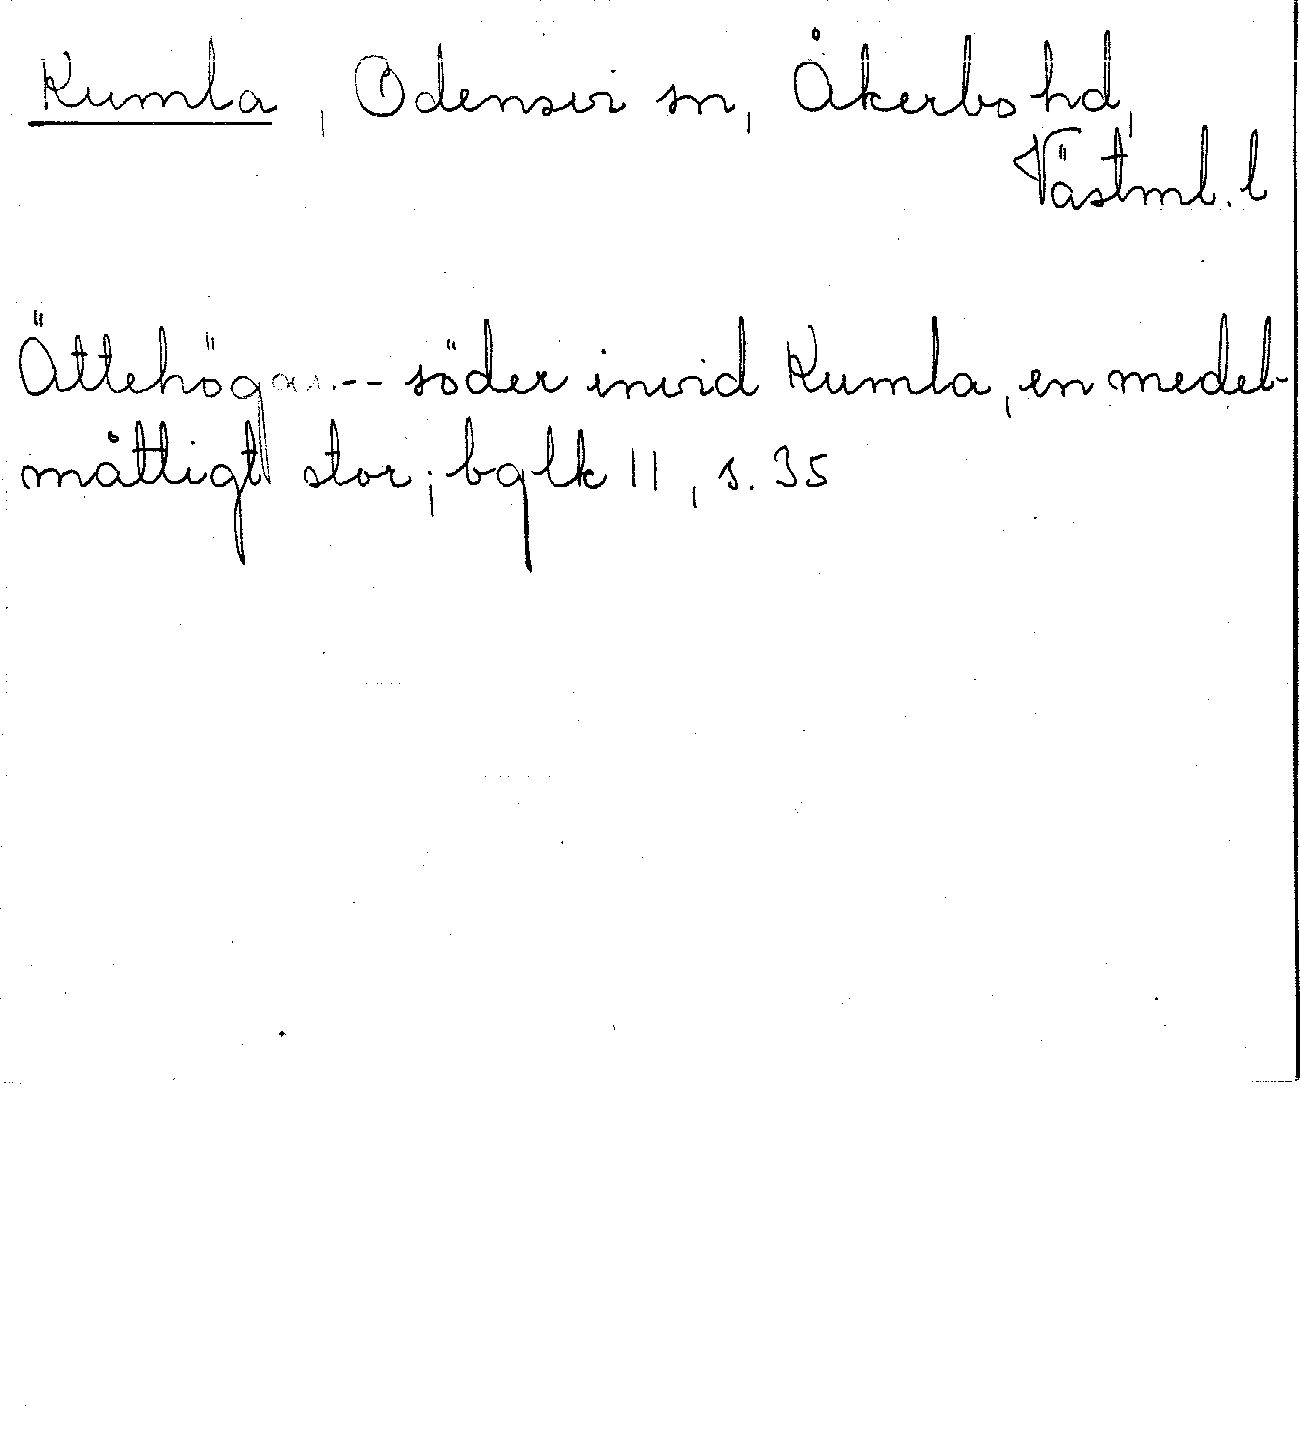 Kumla, Odensvi sn, Åkerbo hd,
Västml. l
Ättehögar.-- söder invid Kumla, en medel-
måttigt stor; bglk 11, s. 35